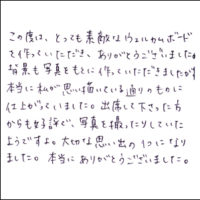 この度は、とっても素敵なウェルカムボード
を作っていただき、ありがとうございました。
背景も写真をもとに作っていただきましたが
本当に私が思い描いている通りのものに
仕上がっていました。出席して下さった方
からも好評で、写真を撮ったりしていた
ようですよ。大切な思い出の1つになり
ました。本当にありがとうございました。